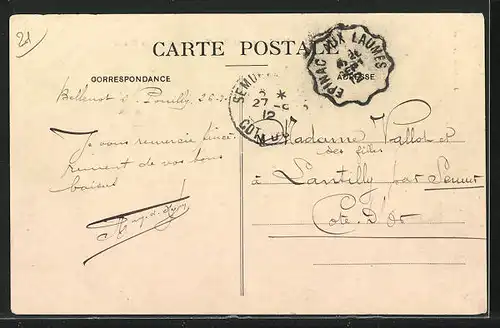 21
CARTE POSTALE
CORRESPONDANCE
ADRESSE
EPINAC AUX LAUMES
SEMUR
27 - 8
12
COTE D'OR
Bellenot s. Pouilly 26-8
Je vous remercie sincè-
rement de vos bons
baisers !
Madame Vallot et
ses filles
à Lantilly par Semur
Côte d'Or